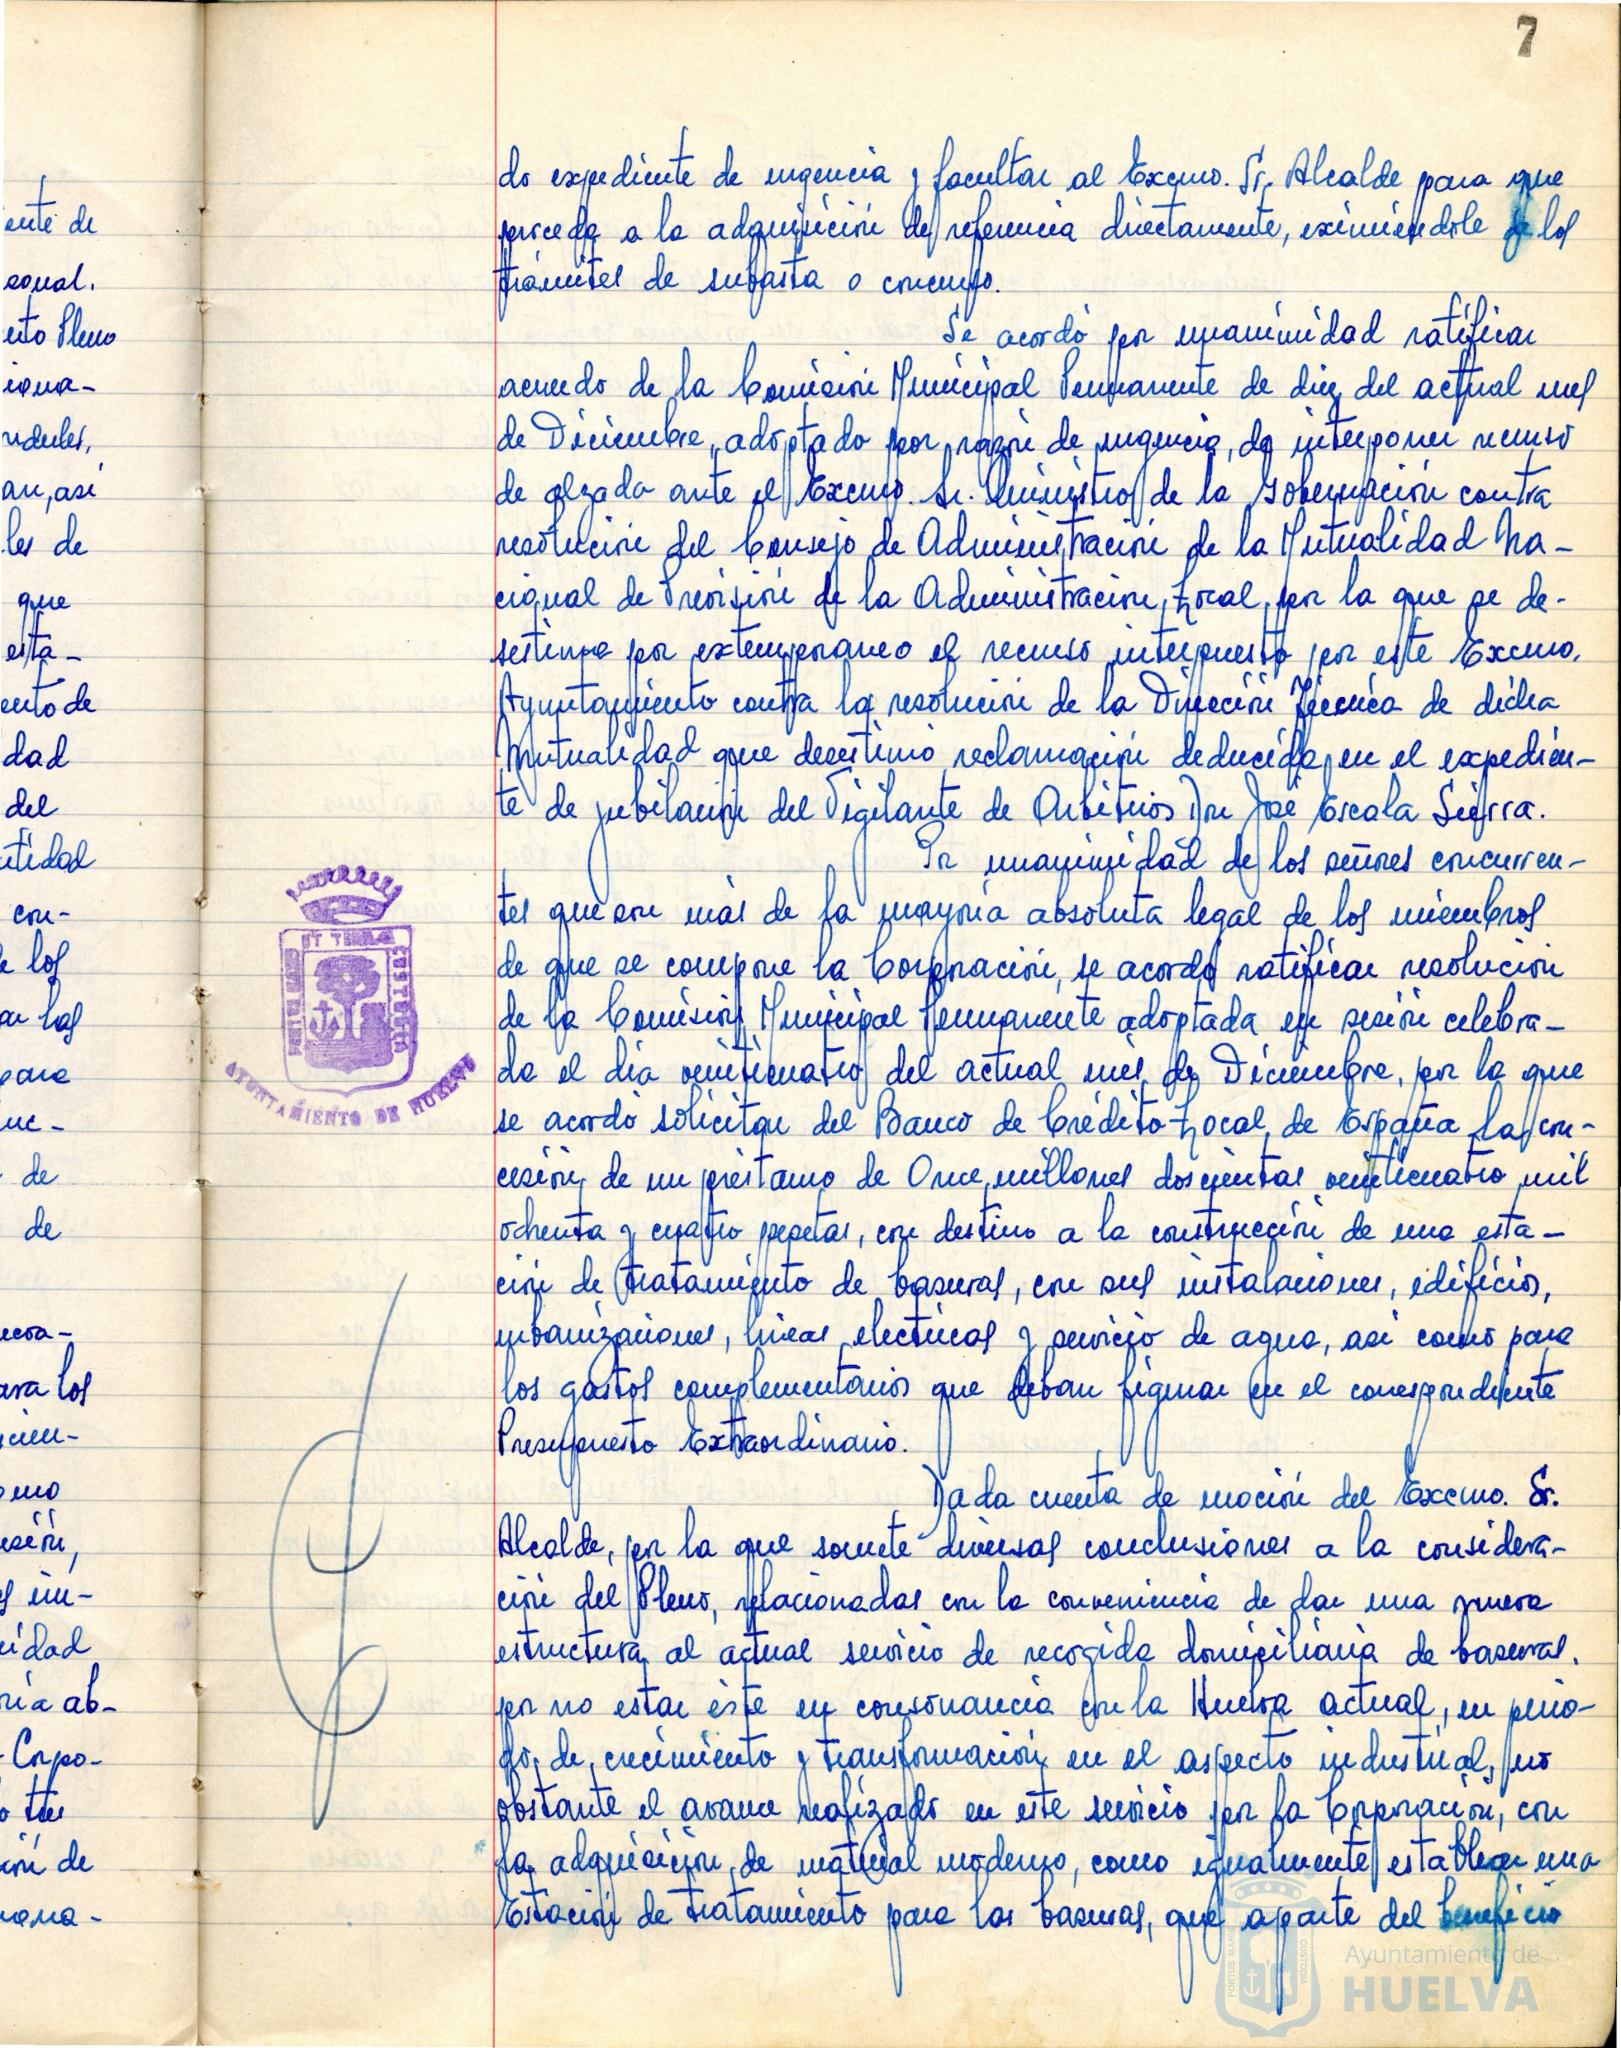 7
do expediente de urgencia y facultar al Excmo. Sr. Alcalde para que
proceda a la adquisición de referencia directamente, eximiéndole de los
trámites de subasta o concurso.
Se acordó por unanimidad ratificar
acuerdo de la Comisión Municipal Permanente de diez del actual mes
de Diciembre, adoptado por razón de urgencia, de interponer recurso
de alzada ante el Excmo. Sr. Ministro de la Gobernación contra
resolución del Consejo de Administración de la Mutualidad Na-
cional de Previsión de la Administración Local, por la que se de-
sestima por extemporaneo el recurso interpuesto por este Excmo.
Ayuntamiento contra la resolución de la Dirección Técnica de dicha
Mutualidad que desestimó reclamación deducida en el expedien-
te de jubilación del Vigilante de Arbitrios Don José Escala Sierra.
Por unanimidad de los señores concurren-
tes que son más de la mayoría absoluta legal de los miembros
de que se compone la Corporación, se acordó ratificar resolución
de la Comisión Municipal Permanente adoptada en sesión celebra-
da el día veinticuatro del actual mes de Diciembre, por la que
se acordó solicitar del Banco de Crédito Local de España la con-
cesión de un préstamo de Once millones doscientas veinticuatro mil
ochenta y cuatro pesetas, con destino a la construcción de una esta-
ción de tratamiento de basuras, con sus instalaciones, edificios,
urbanizaciones, lineas electricas y servicio de agua, asi como para
los gastos complementarios que deban figurar en el correspondiente
Presupuesto Extraordinario.
Dada cuenta de moción del Excmo. Sr.
Alcalde, por la que somete diversas conclusiones a la considera-
ción del Pleno, relacionadas con la conveniencia de dar una nueva
estructura al actual servicio de recogida domiciliaria de basuras,
por no estar éste en consonancia con la Huelva actual, en perio-
do de crecimiento y transformación en el aspecto industrial, no
obstante el avance realizado en este servicio por la Corporación, con
la adquisición de material moderno, como igualmente establecer una
Estación de tratamiento para las basuras, que aparte del beneficio
ente de
sonal.
ento Pleno
iona-
an, asi
les de
que
esta-
ento de
dad
del
ntidad
con-
e los
para
de
de
ara los
sión,
s im-
idad
ria ab-
Corpo-
ión de
PORTUS MARIS ET TERRAE CUSTODIA
AYUNTAMIENTO DE HUELVA
Ayuntamiento de
HUELVA